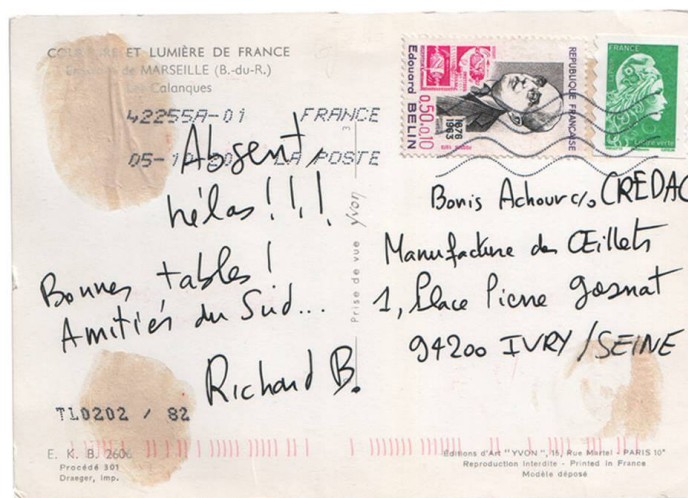 COULEURS ET LUMIÈRE DE FRANCE
de MARSEILLE (B.-du-R.)
Les Calanques
42255A-01 FRANCE
05-10 LA POSTE
Absent,
hélas!!!
Bonnes tables!
Amitiés du Sud...
Richard B.
TL0202 / 82
E. K. B. 2606
Procédé 301
Draeger, imp.
Prise de vue Yvon
3
Edouard BELIN
0,50+0,10
1876
1963
REPUBLIQUE FRANÇAISE
FRANCE
Lettre verte
Bonis Achour c/o CREDAC
Manufacture des Œillets
1, Place Pierre Gosnat
94200 IVRY/SEINE
Editions d'Art "YVON", 15, Rue Martel - PARIS 10e
Reproduction Interdite - Printed in France
Modèle déposé